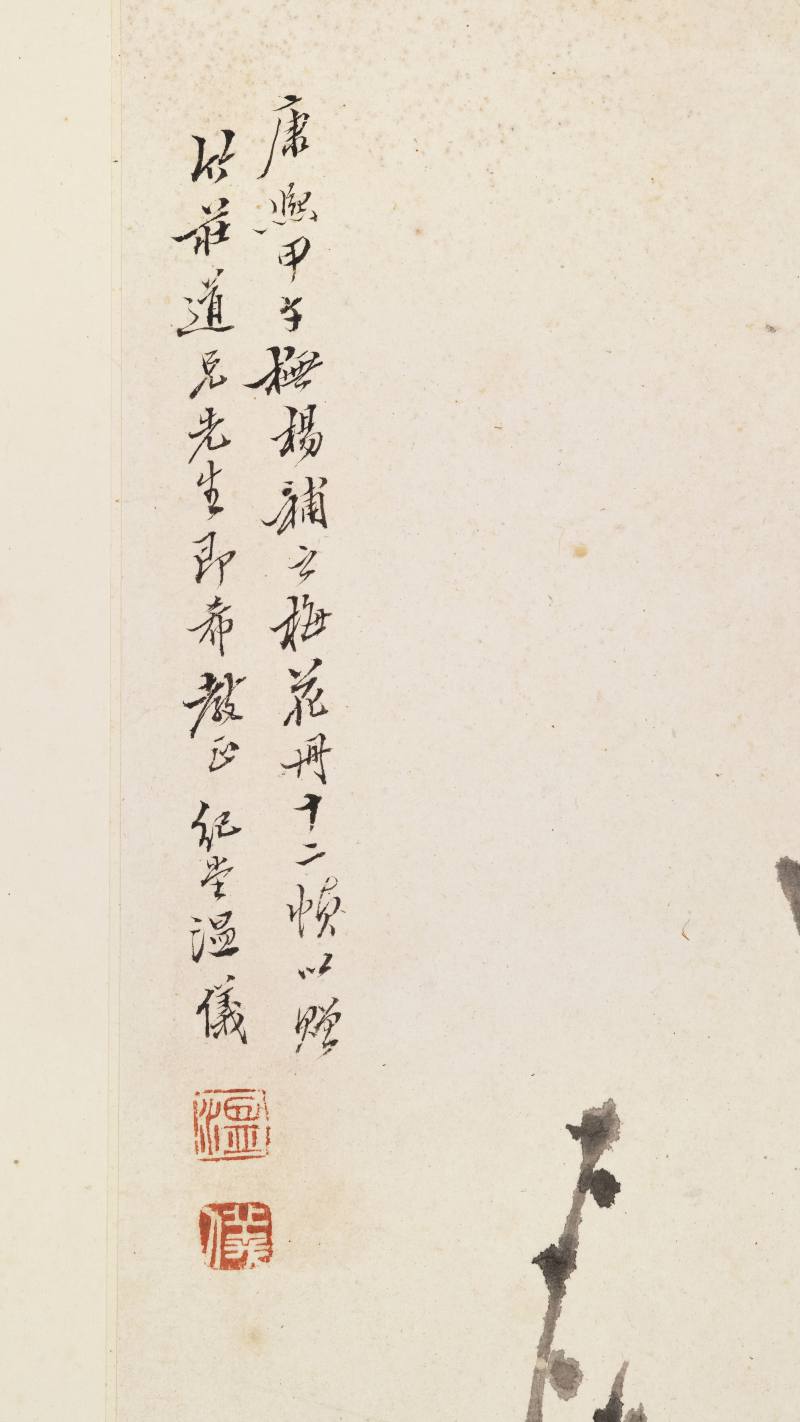 康熙甲子橅楊補之梅花冊十二幀以贈
竹莊道兄先生即希教正 紀堂溫儀
溫
儀